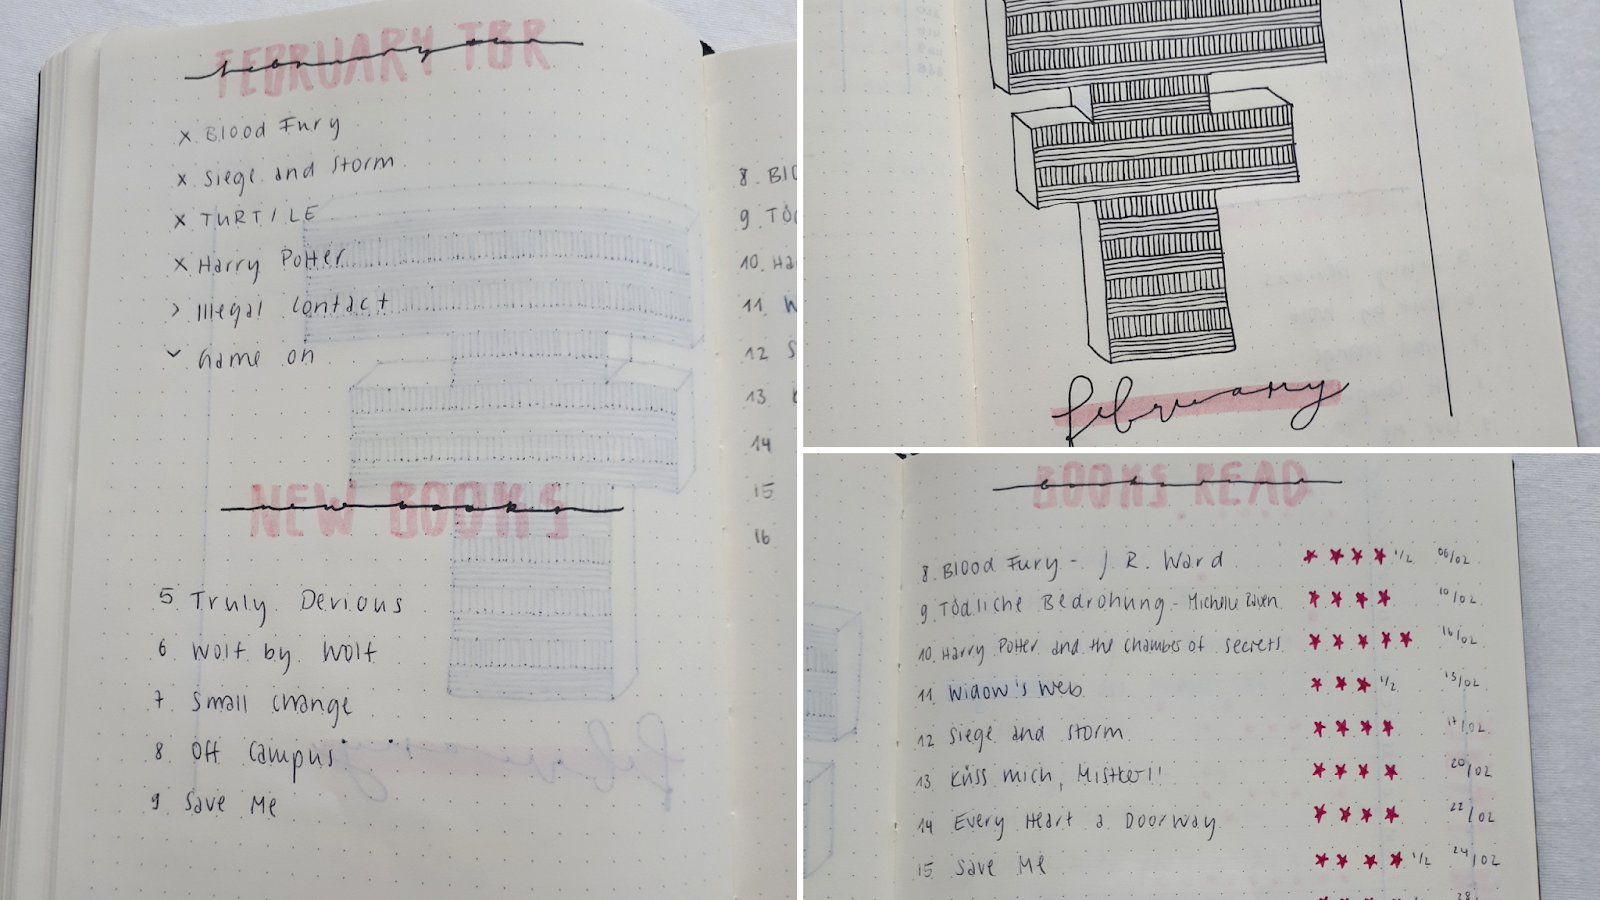 FEBRUARY TBR
february TBR
x Blood Fury
x Siege and Storm
x TURTILE
x Harry Potter
> Illegal Contact
Game on
NEW BOOKS
new books
5 Truly Devious
6 Wolf by Wolf
7 Small change
8 Off Campus
9 Save Me
8. Blo
9. Töd
10. Ha
11 W
12 S
13 K
14
15
16
february
BOOKS READ
books read
8. Blood Fury - J. R. Ward ★★★★ 1/2 06/02
9 Tödliche Bedrohung - Michelle Raven ★★★★ 10/02
10. Harry Potter and the chamber of secrets ★★★★★ 16/02
11 Widow's Web ★★★ 1/2 13/02
12 Siege and Storm ★★★★ 17/02
13 Küss mich, Mistkerl! ★★★★ 20/02
14 Every Heart a Doorway ★★★★ 22/02
15 Save Me ★★★★ 1/2 24/02
28